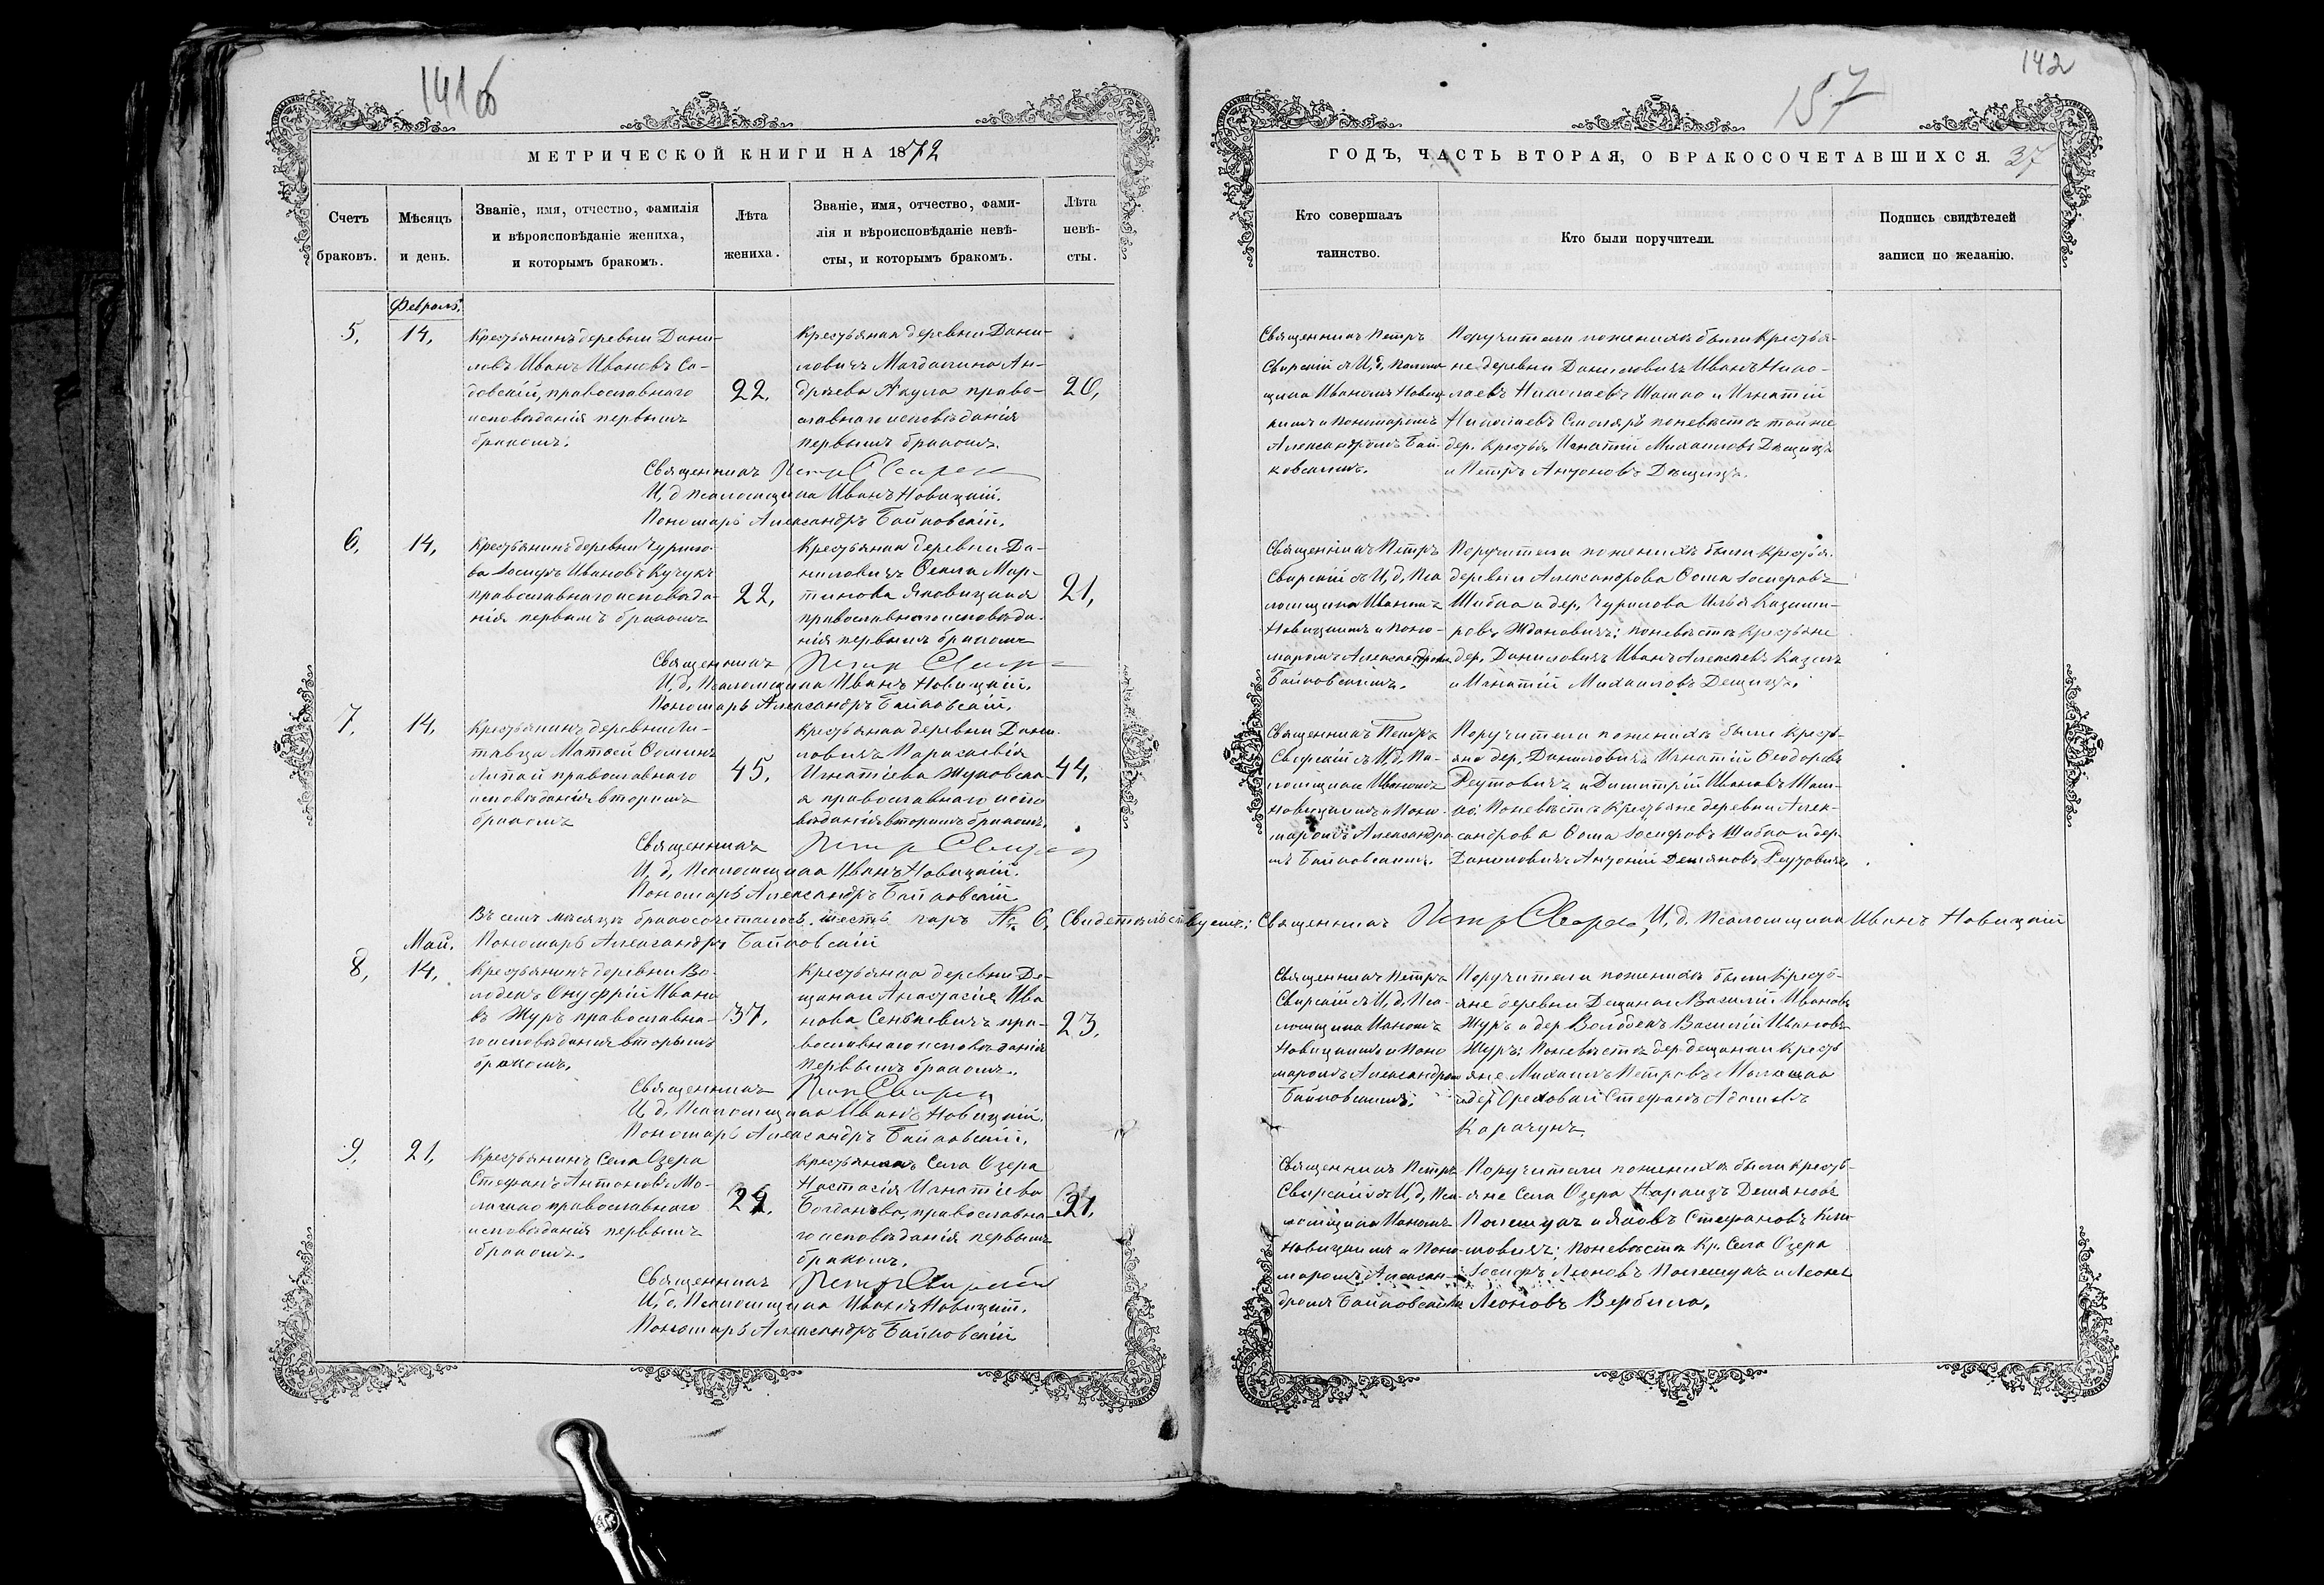 141 об
МЕТРИЧЕСКОЙ КНИГИ НА 1872
Счетъ браковъ.
Мѣсяцъ и день.
Званіе, имя, отчество, фамилія
и вѣроисповѣданіе жениха,
и которымъ бракомъ.
Лѣта жениха.
Званіе, имя, отчество, фами-
лія и вѣроисповѣданіе невѣ-
сты, и которымъ бракомъ.
Лѣта невѣ-
сты.
Февраль.
5, 14,
Крестьянинъ деревни Дани-
ловъ Иванъ Ивановъ Са-
довскій, православнаго
исповѣданія первымъ
бракомъ.
22,
Крестьянка деревни Дани-
ловичъ Магдалина Ан-
дреева Акула право-
славнаго исповѣданія
первымъ бракомъ.
20,
Священникъ Петръ
И, д Псаломщика Иванъ Новицкій.
Пономарь Александръ Байковскій.
6, 14,
Крестьянинъ деревни Чурило-
ва Іосифъ Ивановъ Кучукъ
православнаго исповѣда-
нія первымъ бракомъ
22,
Крестьянка деревни Да-
ниловичъ Ѳекла Мар-
тинова Яновицкая
православнаго исповѣда-
нія первымъ бракомъ
21,
Священникъ Петръ
И, д, Псаломщика Иванъ Новицкій.
Пономарь Александръ Байковскій.
7, 14,
Крестьянинъ деревни Ли-
Матѳей Ѳоминъ
Липай православнаго
исповѣданія вторымъ
бракомъ
45,
Крестьянка деревни Дани-
ловичъ Параскевія
Игнатіева Жуковска-
я православнаго испо
вѣданія вторымъ бракомъ.
44,
Священникъ Петръ
И, д, Псаломщика Иванъ Новицкій.
Пономарь Александръ Байковскій
Въ семъ мѣсяцѣ бракосочеталось шесть паръ № 6, Свидетельствуемъ: Священникъ Петръ И, д. Псаломщика Иванъ Новицкій
Май. Пономарь Александръ Байковскій
8, 14,
Крестьянинъ деревни Во-
лодекъ Онуфрій Ивано
въ Журъ православна-
го исповѣданія вторымъ
бракомъ.
37.
Крестьянка деревни Де-
щанки Анастасія Ива
нова Сенькевичъ пра-
вославнаго исповѣданія
первымъ бракомъ.
23,
Священникъ Петръ
И, д, Псаломщика Иванъ Новицкій.
Пономарь Александръ Байковскій.
9, 21,
Крестьянинъ Села Озера
Стефанъ Антоновъ Мо-
православнаго
исповѣданія первымъ
бракомъ.
Крестьянка Села Озера
Настасія Игнатіева
Богданова, православна-
го исповѣданія первымъ
бракомъ.
21,
Священникъ Петръ Свирскій
И, д. Псаломщика Иванъ Новицкій.
Пономарь Александръ Байковскій
142
157
ГОДЪ, ЧАСТЬ ВТОРАЯ, О БРАКОСОЧЕТАВШИХСЯ. 37
Кто совершалъ
таинство.
Кто были поручители.
Подпись свидѣтелей
записи по желанію.
Священникъ Петръ
Свирскій съ И, д, Псалом-
щика Иваномъ Новиц-
кимъ и Пономаремъ
Александромъ Бай-
ковскимъ.
Поручители по женихѣ были крестья-
не деревни Даниловичъ Иванъ Нико-
лаевъ Николаевъ Машко и Игнатій
Николаевъ Столяръ по невѣстѣ той же
дер. Крестья. Игнатій Михаиловъ Дещицъ
и Петръ Антоновъ Дещицъ.
Священникъ Петръ
Свирскій съ И, д, Пса
ломщика Иваномъ
Новицкимъ и Поно-
маромъ Александромъ
Байковскимъ.
Поручители по женихѣ были крестья.
деревни Александрова Ѳома Іосифовъ
Шибко и дер. Чурилова Илья Казими-
ровъ Ждановичъ: по невѣстѣ крестьяне
дер. Даниловичъ Иванъ Алексѣевъ
и Игнатій Михаиловъ Дещицъ.
Священникъ Петръ
Свирскій съ И, д, Пса-
ломщика Иваномъ
Новицкимъ и Поно-
маромъ Александро
мъ Байковскимъ.
Поручители по женихѣ были кресть-
яне дер. Даниловичъ Игнатій Ѳеодоровъ
Реутовичъ и Димитрій Ивановъ Маш-
ко: По невѣстѣ крестьяне деревни Алек-
сандрова Ѳома Іосифовъ Шибко и дер.
Даниловичъ Антоній Демяновъ Реутовичъ.
Священникъ Петръ
Свирскій съ И, д, Пса-
ломщика Иваномъ
Новицкимъ и Поно
маромъ Александромъ
Байковскимъ.
Поручители по женихѣ были Кресть-
яне деревни Дещанки Василій Ивановъ
Журъ и дер Володекъ Василій Ивановъ
Журъ: По невѣстѣ дер Дещанки кресть
яне Михаилъ Петровъ
и дер Ореховки Стефанъ Адамовъ
Карачунъ.
Священникъ Петръ
Свирскій съ И, д, Пса-
ломщика Иваномъ
Новицкимъ и Поно
маромъ Алексан-
дромъ Байковскимъ
Поручители по женихѣ были кресть-
яне Села Озера Демяновъ
Полещукъ и Яковъ Стефановъ Кли-
мовичъ: По невѣстѣ Кр. Села Озера
Іосифъ Леоновъ Полещукъ и Леонъ
Леоновъ Вербило.